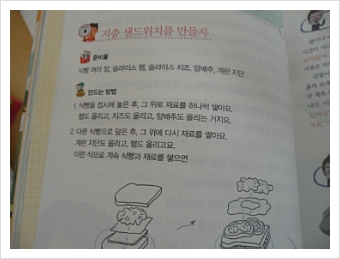 지층 샌드위치를 만들자
준비물
식빵 여러 장, 슬라이스 햄, 슬라이스 치즈, 양배추, 계란 지단
만드는 방법
1. 식빵을 접시에 놓은 후, 그 위로 재료를 하나씩 쌓아요.
햄도 올리고, 치즈도 올리고, 양배추도 올리는 거지요.
2. 다른 식빵으로 덮은 후, 그 위에 다시 재료를 쌓아요.
계란 지단도 올리고, 햄도 올리고요.
이런 식으로 계속 식빵과 재료를 쌓으면